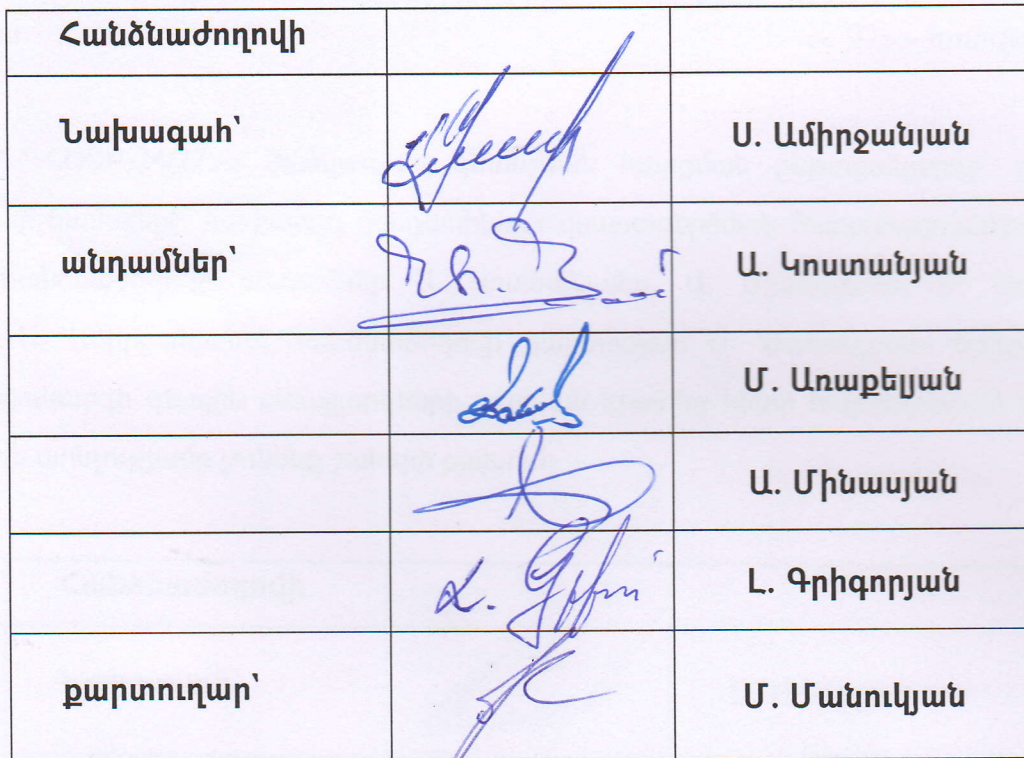 Հանձնաժողովի
Նախագահ՝ Ս. Ամիրջանյան
անդամներ՝ Ա. Կոստանյան
Մ. Առաքելյան
Ա. Մինասյան
Լ. Գրիգորյան
քարտուղար՝ Մ. Մանուկյան